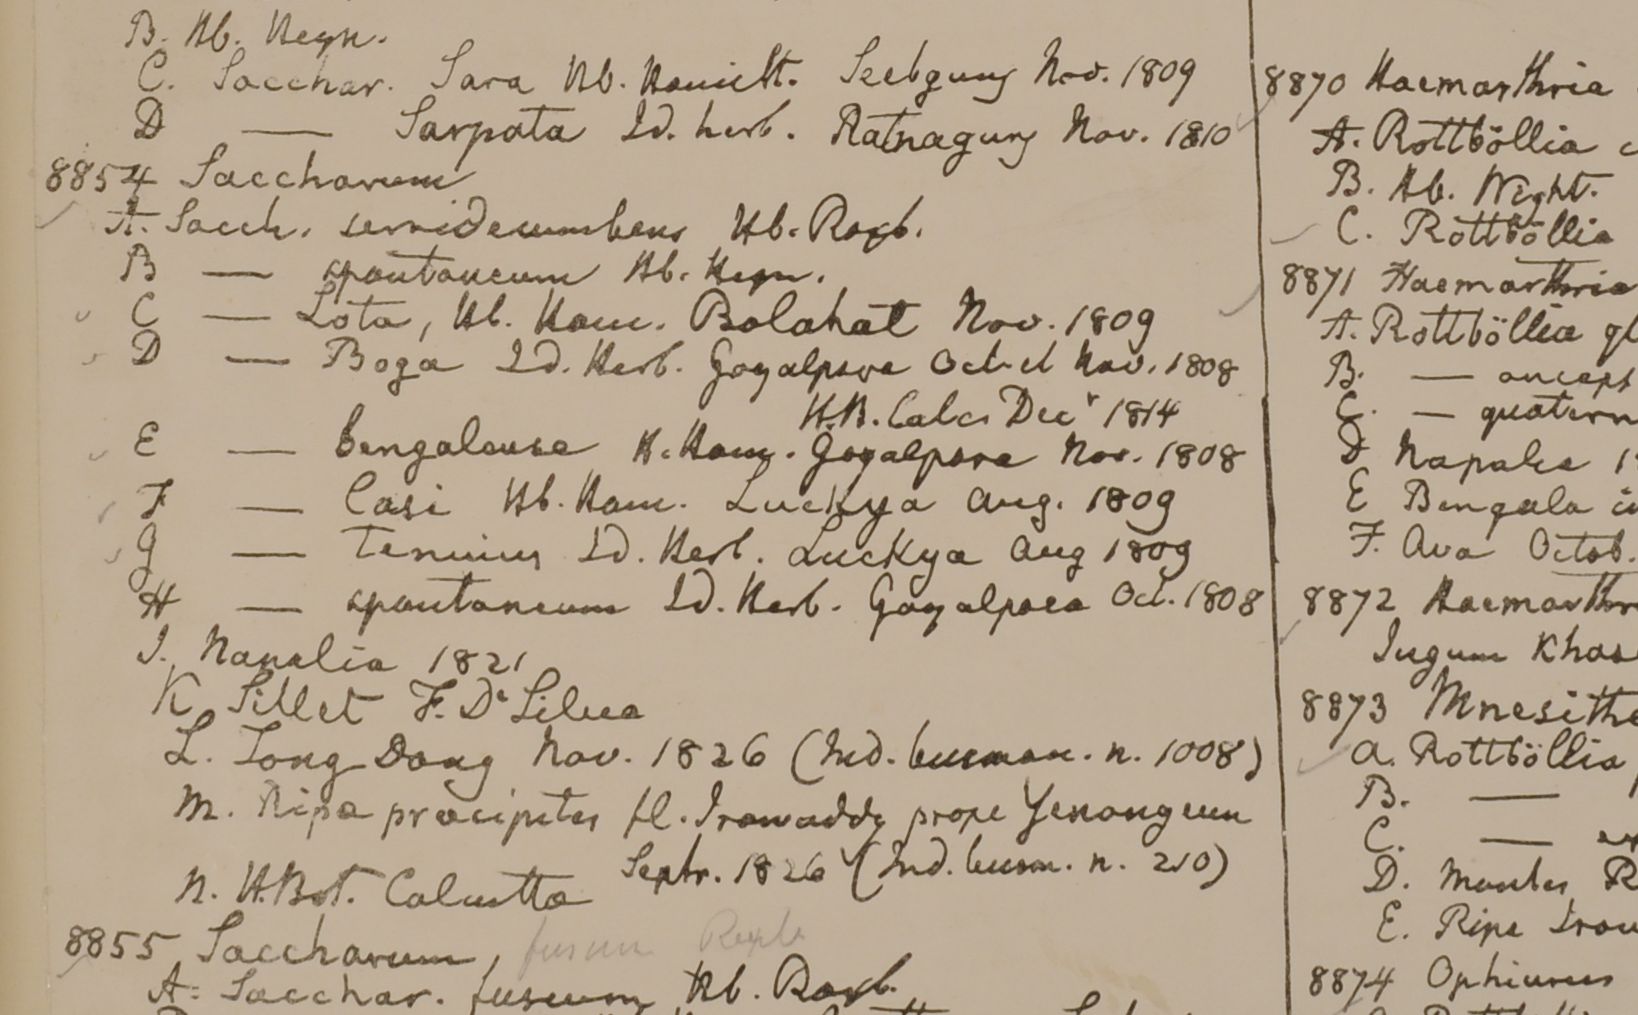 B. Hb. Heyn.
C. Sacchar. Sara Hb. Hamilt. Seebgunj Nov. 1809
D — Sarpata Id. herb. Ratnagunj Nov. 1810
8854 Saccharum
A. Sacch. semidecumbens Hb. Roxb.
B — spontaneum Hb. Heyn.
C — Lota, Hb. Ham. Bolahat Nov. 1809
D — Boga Id. Herb. Goyalpara Oct. et Nov. 1808
H.B. Calc. Decr 1814
E — bengalense H. Ham. Goyalpara Nov. 1808
F — Casi Hb. Ham. Luckya Aug. 1809
G — tenuius Id. Herb. Luckya Aug 1809
H — spontaneum Id. Herb. Goyalpara Oct. 1808
I. Napalia 1821
K Sillet F. De Silva
L. Tong Dong Nov. 1826 (Ind. burman. n. 1008)
M. Ripa praecipites fl. Irawaddy prope Yenangeun
Septr. 1826 (Ind. burm. n. 210)
N. H. Bot. Calcutta
8855 Saccharum, fuscum Roxb
A. Sacchar. fuscum Hb. Roxb.
8870 Haemarthria
A. Rottböllia c
B. Hb. Wight.
C. Rottböllia
8871 Haemarthria
A. Rottböllia gl
B. — ancept
C. — quatern
D Napalia 1
E Bengala
F. Ava Octob.
8872 Haemarthr
Jugum Khas
8873 Mnesithe
A. Rottböllia
B. —
C. —
D. Montes R
E. Ripa Irow
8874 Ophiurus